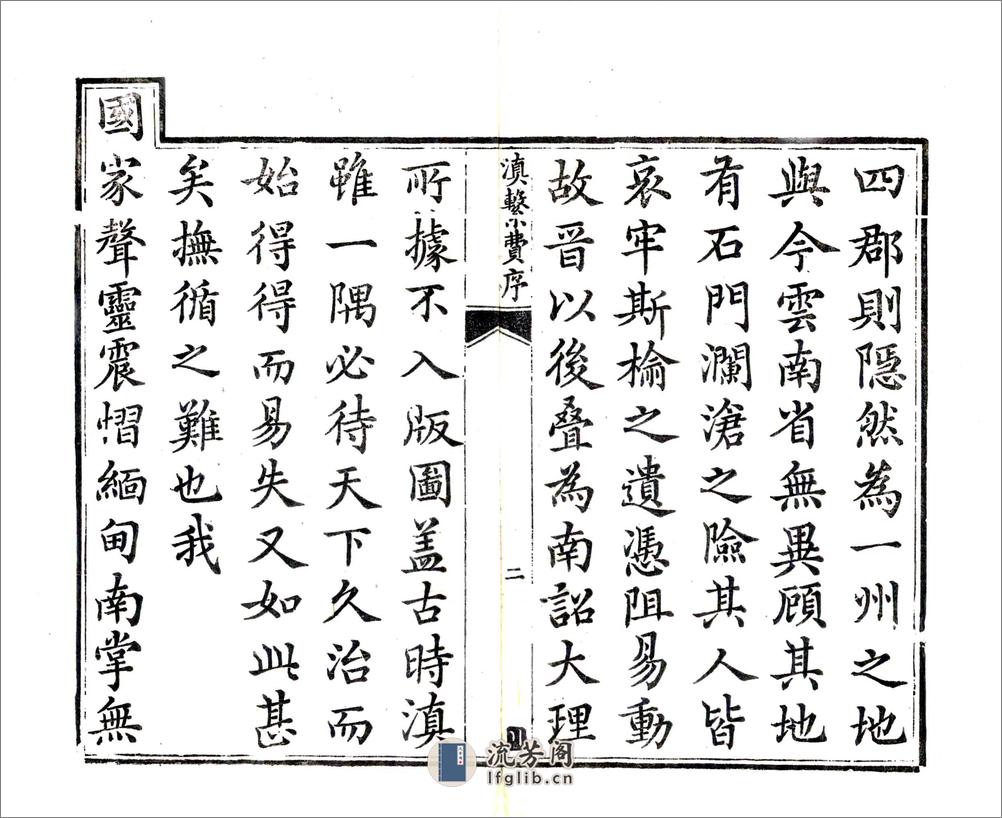 四郡則隱然為一州之地
與今雲南省無異顧其地
有石門瀾滄之險其人皆
哀牢斯榆之遺憑阻易動
故晉以後疊為南詔大理
滇繫費序
二
所據不入版圖盖古時滇
雖一隅必待天下久治而
始得得而易失又如此甚
矣撫循之難也我
國家聲靈震慴緬甸南掌無
流芳阁
lfglib.cn